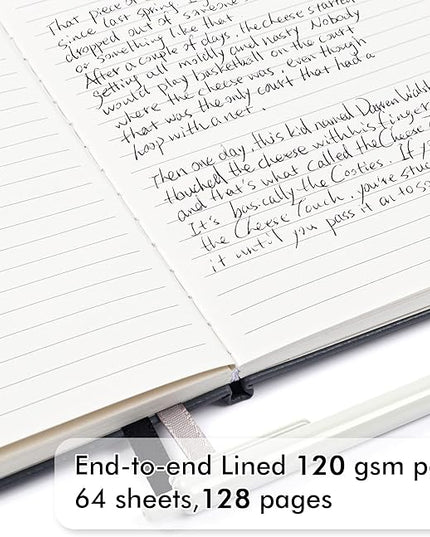 That Piece
since last spring
dropped out of someone
or something like that
After a couple of days, the cheese started
getting all moldy and nasty. Nobody
would play basketball on the court
where the cheese was, even though
that was the only court that had a
hoop with a net.
Then one day, this kid named Darren Wal
touched the cheese with his finger
and that's what called the Cheese
It's basically the Cooties. If y
the Cheese Touch, you're stuc
it until you pass it on to so
End-to-end Lined 120 gsm p
64 sheets,128 pages